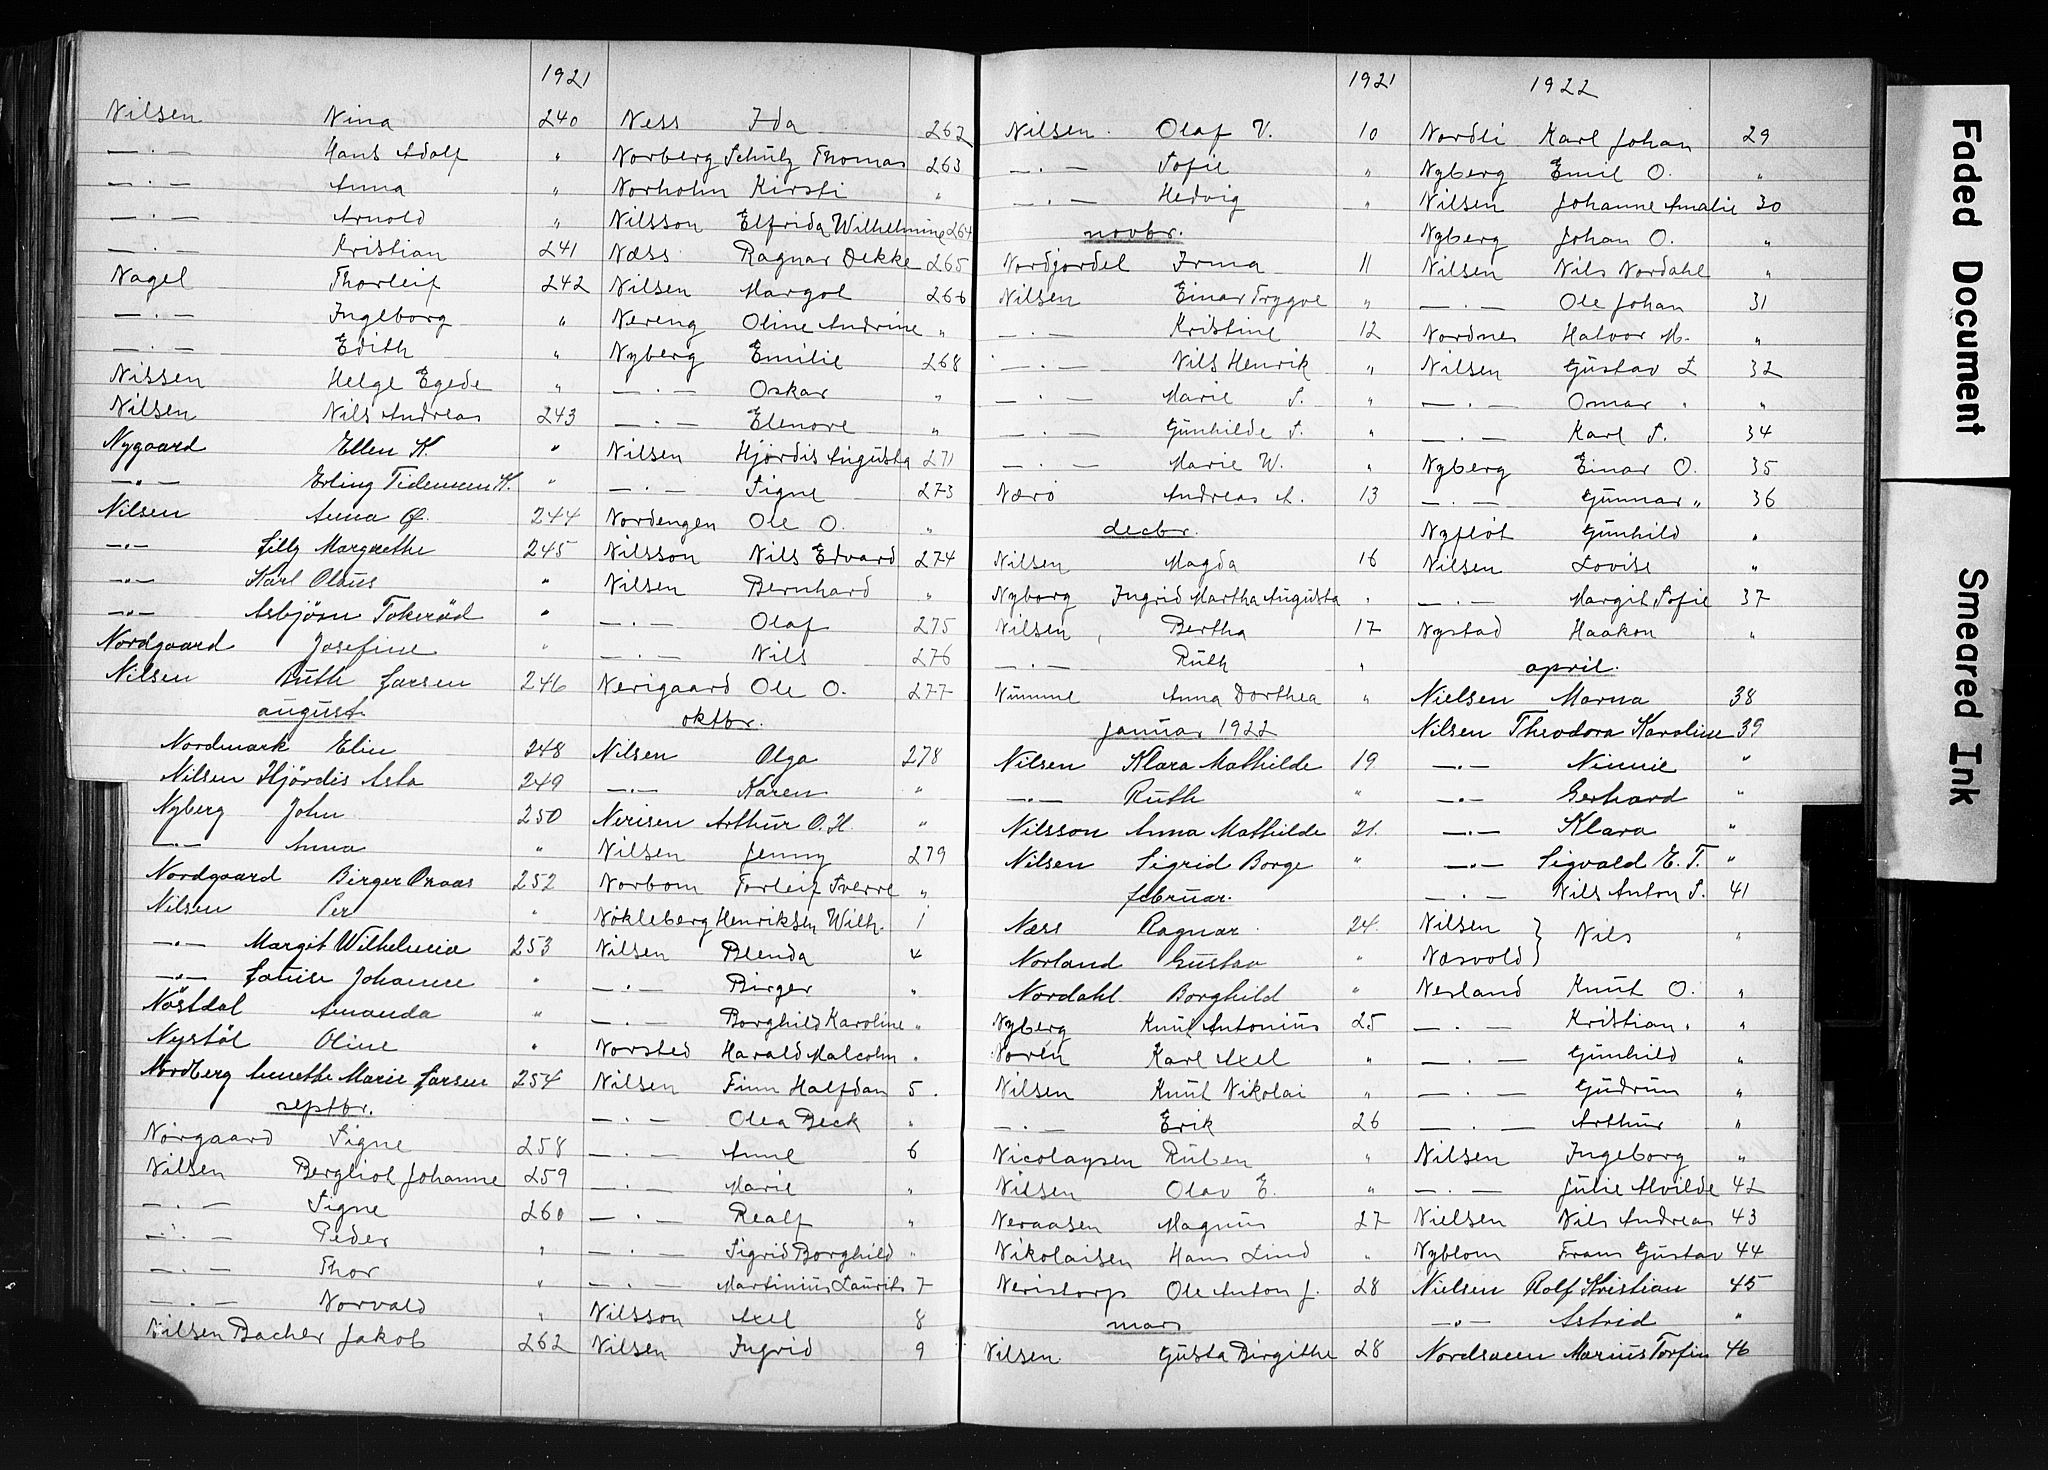 1921
Nilsen Nina 240
— . — Hans Adolf "
— . — Anna "
— . — Arnold "
— . — Kristian 241
Nagel Thorleif 242
— . — Ingeborg "
— . — Edith "
Nissen Helge Egede "
Nilsen Nils Andreas 243
Nygaard Ellen K. "
— „ — Erling Tidemum K. "
Nilsen Anna Ø. 244
— „ — Lilly Margrethe 245
— „ — Karl Olaus "
— „ — Asbjörn Tokeröd "
Nordgaard Josefine "
Nilsen Ruth Larsen 246
august
Nordmark Elin 248
Nilsen Hjördis Asta 249
Nyberg John 250
— „ — Anna "
Nordgaard Birger Onaas 252
Nilsen Per "
— „ — Margit Wilhelmia 253
— „ — Louise Johanne "
Nöstdal Amanda "
Nystöl Oline "
Nordberg Annette Marie Larsen 254
septbr.
Nörgaard Signe 258
Nilsen Bergliot Johanne 259
— . — Signe 260
— . — Peder "
— . — Thor "
— . — Norvald "
Nilsen Bacher Jakob 262
Ness Ida 262
Norberg Schulz Thomas 263
Norholm Kirsti "
Nilsson Elfrida Wilhelmine 264
Næss Ragnar Dekke 265
Nilsen Margot 266
Nereng Oline Andrine "
Nyberg Emilie 268
— . — Oskar "
— . — Elenore "
Nilsen Hjørdis Augusta 271
— . — Signe 273
Nordengen Ole O. "
Nilsson Nils Edvard 274
Nilsen Bernhard "
— . — Olaf 275
— . — Nils 276
Nerigaard Ole O. 277
oktbr.
Nilsen Olga 278
— „ — Karen "
Nerisen Arthur O. H. "
Nilsen Jenny 279
Norbom Torleif Sverre "
Nökleberg Henriksen Wilh. 1
Nilsen Blenda 4
— . — Birger "
— . — Borghild Karoline "
Norsted Harald Malcolm "
Nilsen Finn Halfdan 5.
— . — Olea Beck "
— . — Anne 6
— . — Marie "
— . — Realf "
— . — Sigrid Borghild "
— . — Martinius Laurits 7
Nilsson Axel 8
Nilsen Ingrid 9
1921
Nilsen Olaf V. 10
— . — Sofie "
— . — Hedvig "
novbr.
Nordjordet Irma 11
Nilsen Einar Trygve "
— . — Kristine 12
— . — Nils Henrik "
— . — Marie S. "
— . — Gunhilde S. "
— . — Marie W. "
Nærö Andreas A. 13
decbr.
Nilsen Magda 16
Nyborg Ingrid Martha Augusta "
Nilsen Bertha 17
— . — Ruth "
Numme Anna Dorthea "
januar 1922
Nilsen Klara Mathilde 19
— „ — Ruth "
Nilsson Anna Mathilde 21.
Nilsen Sigrid Borge "
februar.
Næss Ragnar 24.
Norland Gustav "
Nordahl Borghild "
Nyberg Knut Antonius 25
Norén Karl Axel "
Nilsen Knut Nikolai "
— . — Erik 26
Nicolaysen Ruben "
Nilsen Olav E. "
Neraasen Magnus 27
Nikolaisen Hans Lind "
Neristorp Ole Anton J. 28
mars
Nilsen Gusta Birgithe 28
1922
Nordli Karl Johan 29
Nyberg Emil O. "
Nilsen Johanne Amalie 30
Nyberg Johan O. "
Nilsen Nils Nordahl "
— . — Ole Johan 31
Nordnes Halvor M. "
Nilsen Gustav L 32
— . — Omar "
— . — Karl S. 34
Nyberg Einar O. 35
— . — Gunnar „ 36
Nyflöt Gunhild "
Nilsen Lovise "
— . — Margit Sofie 37
Nystad Haakon "
april.
Nielsen Marna 38
Nilsen Theodora Karoline 39
— „ — Nimmie "
— „ — Gerhard "
— „ — Klara "
— „ — Sigvald E. T. "
— . — Nils Anton S. 41
Nilsen } Nils "
Næsvold }
Nesland Knut O. "
— . — Kristian „ "
— . — Gunhild "
— . — Gudrun "
— . — Arthur "
Nilsen Ingeborg "
— . — Julie Alvilde 42
Nielsen Nils Andreas 43
Nyblom Frans Gustav 44
Nielsen Rolf Kristian 45
— „ — Astrid "
Nordsveen Marius Torfin 46
Faded Document
Smeared Ink